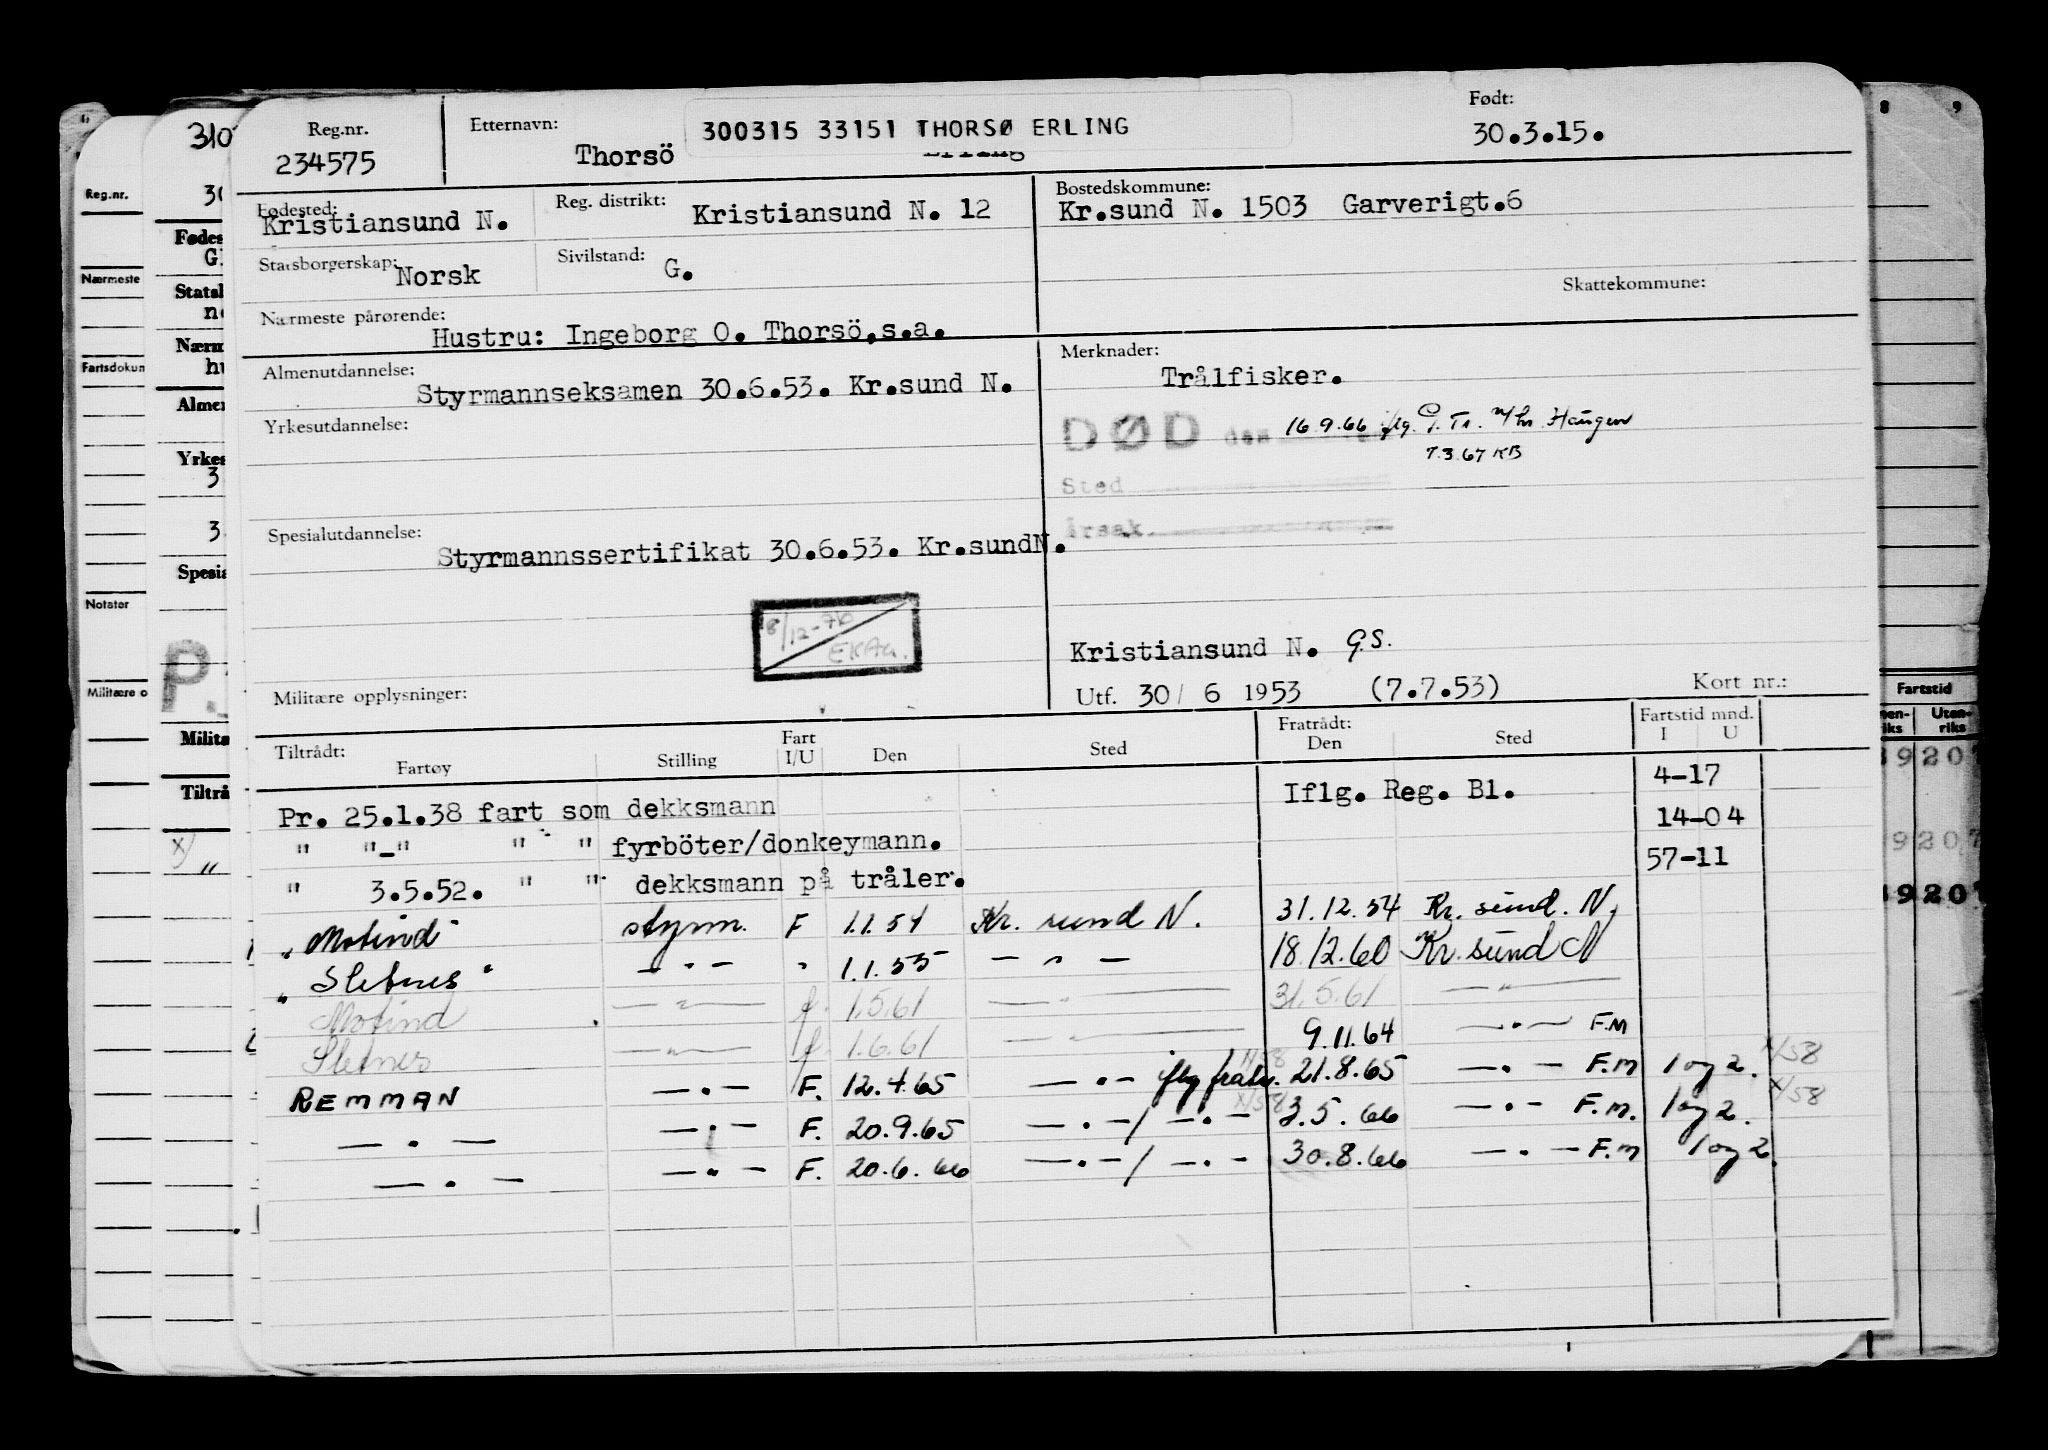 Reg.nr. 234575
Etternavn: Thorsö
300315 33151 THORSØ ERLING
Født: 30.3.15.
Fødested: Kristiansund N.
Reg. distrikt: Kristiansund N. 12
Bostedskommune: Kr.sund N. 1503 Garverigt.6
Statsborgerskap: Norsk
Sivilstand: G.
Skattekommune:
Nærmeste pårørende: Hustru: Ingeborg O. Thorsö,s.a.
Almenutdannelse: Styrmannseksamen 30.6.53. Kr.sund N.
Merknader: Trålfisker.
DØD den 16.9.66 iflg. J. Tr. Haugen
7.3.67 KB
Sted
Årsak
Yrkesutdannelse:
Spesialutdannelse: Styrmannssertifikat 30.6.53. Kr.sundN.
8/12-70
Kristiansund N. G.S.
Militære opplysninger:
Utf. 30/ 6 1953 (7.7.53)
Kort nr.:
Tiltrådt: Fartøy Stilling Fart I/U Den Sted Fratrådt: Den Sted Fartstid mnd. I U
Pr. 25.1.38 fart som dekksmann Iflg. Reg. Bl. 4-17
" "-" " " fyrböter/donkeymann. 14-04
" 3.5.52. " " dekksmann på tråler. 57-11
" Motind " styrm. F 1.1.54 Kr. sund N. 31.12.54 Kr. sund. N.
" Sletnes " — " — " 1.1.55 — " — 18.12.60 Kr. sund N
Motind — " — f. 1.5.61 — " — 31.5.61 — " —
Sletnes — " — f. 1.6.61 — " — 9.11.64 — " — F.M
REMMAN — " — F. 12.4.65 — " — iflg fratr. 21.8.65 — " — F.M 1 og 2. X/58
— " — — " — F. 20.9.65 — " — / — " — 3.5.66 — " — F.M. 1 og 2. X/58
— " — — " — F. 20.6.66 — " — / — " — 30.8.66 — " — F.M 1 og 2.
Reg.nr.
Nærmeste
Fartsdokum
Notater
Militære o
310
Fødes
Statsl
Nærm
Almen
Yrkes
Spesia
Milita
Tiltrå
8 9
Fartstid
Uten-
riks